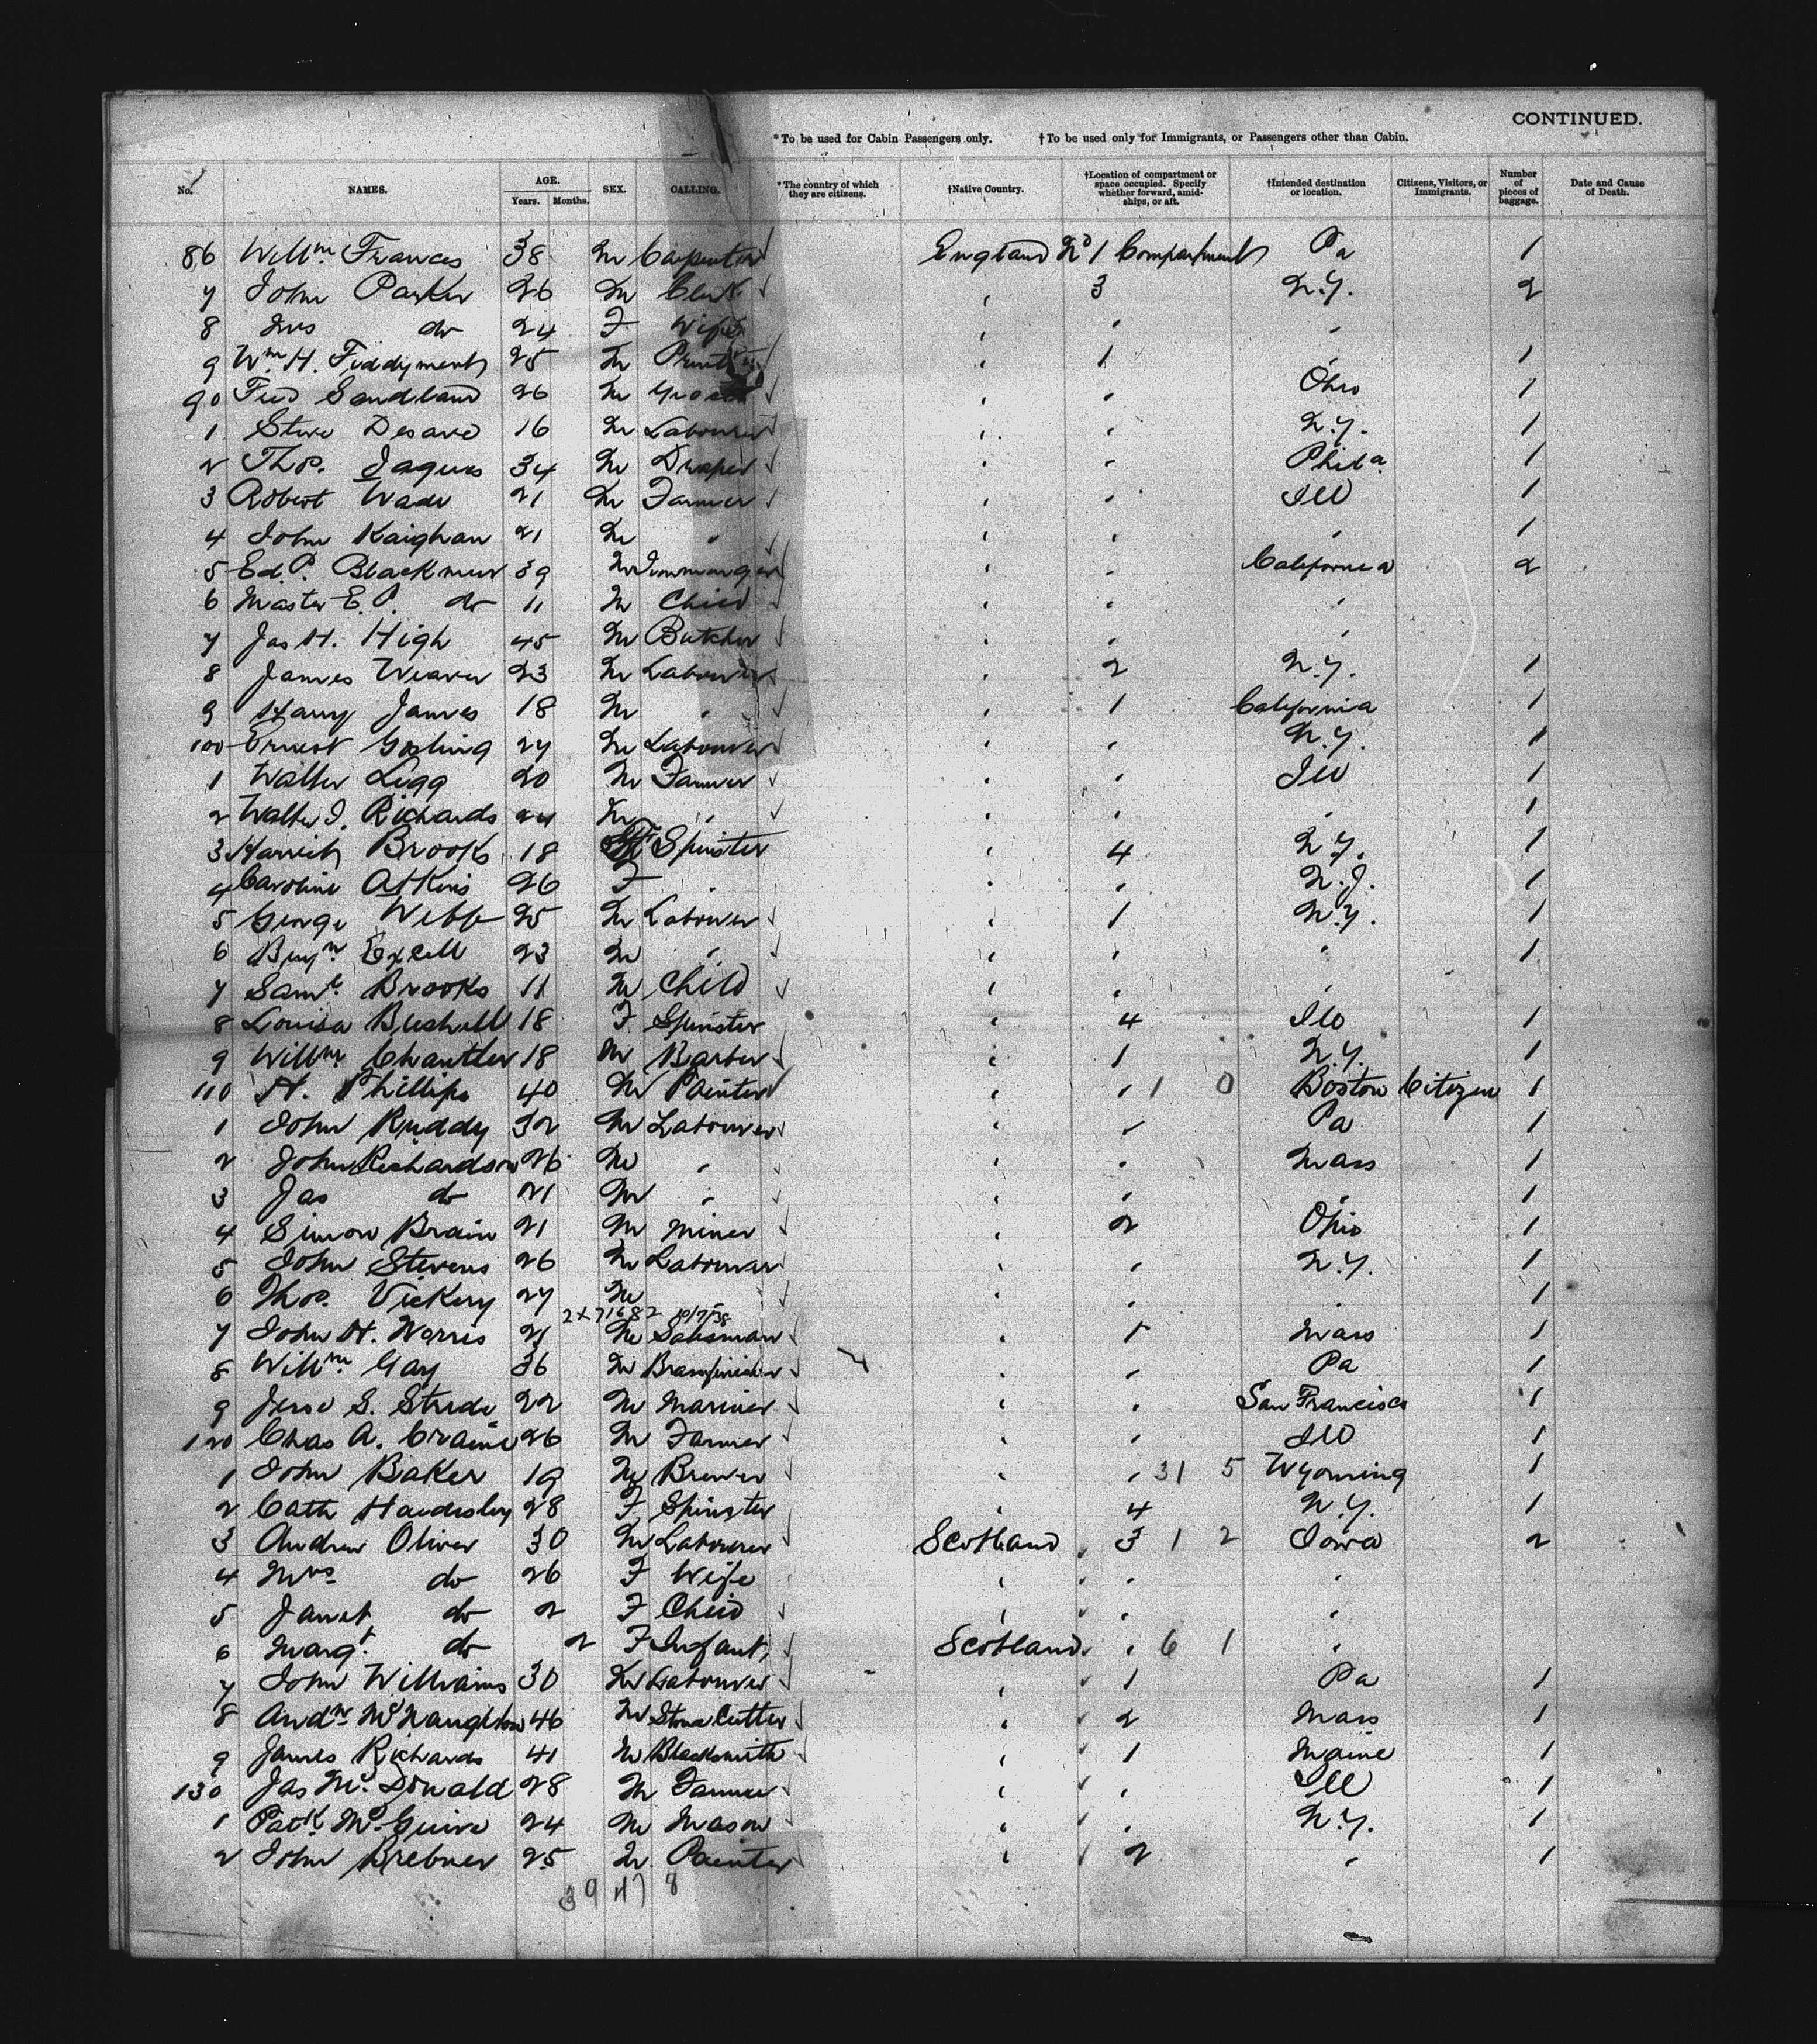 CONTINUED.
*To be used for Cabin Passengers only. †To be used only for Immigrants, or Passengers other than Cabin.
No. NAMES. AGE. Years. Months. SEX. CALLING. *The country of which they are citizens. †Native Country. †Location of compartment or space occupied. Specify whether forward, amidships, or aft. †Intended destination or location. Citizens, Visitors, or Immigrants. Number of pieces of baggage. Date and Cause of Death.
86 Willm Frances 38 M Carpenter England No 1 Compartment Pa 1
7 John Parker 26 M Clerk " 3 N.Y. 2
8 Mrs do 24 F Wife " " "
9 Wm H. Fiddyment 25 M Printer " 1 " 1
90 Fred Sandland 26 M Grocer " " Ohio 1
1 Steve Desave 16 M Labourer " " N.Y. 1
2 Thos. Jaques 34 M Draper " " Phila 1
3 Robert Wade 21 M Farmer " " Ill 1
4 John Kaighan 21 M " " " " 1
5 Ed. P. Blackmur 39 M Ironmonger " " California 2
6 Master E. P. do 11 M Child " " "
7 Jas H. High 45 M Butcher " " "
8 James Weaver 23 M Labourer " 2 N.Y. 1
9 Harry James 18 M " " 1 California 1
100 Ernest Gosling 27 M Labourer " " N.Y. 1
1 Walter Legg 20 M Farmer " " Ill 1
2 Walter J. Richards 24 M " " " " 1
3 Harriet Brooks 18 F Spinster " 4 N.Y. 1
4 Caroline Atkins 26 F " " " N.J. 1
5 George Webb 25 M Labourer " 1 N.Y. 1
6 Benjn Excell 23 M " " " " 1
7 Saml Brooks 11 M Child " " "
8 Louisa Bushell 18 F Spinster " 4 Ill 1
9 Willm Chantler 18 M Barber " 1 N.Y. 1
110 H. Phillips 40 M Painter " " 1 0 Boston Citizen 1
1 John Ruddy 32 M Labourer " " Pa 1
2 John Richardson 26 M " " " Mass 1
3 Jas do 21 M " " " " 1
4 Simon Brain 21 M Miner " 2 Ohio 1
5 John Stevens 26 M Labourer " " N.Y. 1
6 Thos. Vickery 27 M " " " 1
2x71682 10/7/38
7 John H. Norris 21 M Salesman " 1 Mass 1
8 Willm Gay 36 M Brassfinisher " " Pa 1
9 Jesse S. Stride 22 M Mariner " " San Francisco 1
120 Chas A. Craine 26 M Farmer " " Ill 1
1 John Baker 19 M Brewer " " 31 5 Wyoming 1
2 Cath Hardisley 28 F Spinster " 4 N.Y. 1
3 Andrew Oliver 30 M Labourer Scotland 3 1 2 Iowa 2
4 Mrs do 26 F Wife " " "
5 Janet do 2 F Child " " "
6 Margt do 2 F Infant Scotland " 6 1 "
7 John Williams 30 M Labourer " 1 Pa 1
8 Andw McNaughton 46 M Stone Cutter " 2 Mass 1
9 James Richards 41 M Blacksmith " 1 Maine 1
130 Jas McDonald 28 M Farmer " " Ill 1
1 Patk McGuire 24 M Mason " " N.Y. 1
2 John Brebner 25 M Painter " 2 " 1
39 47 8